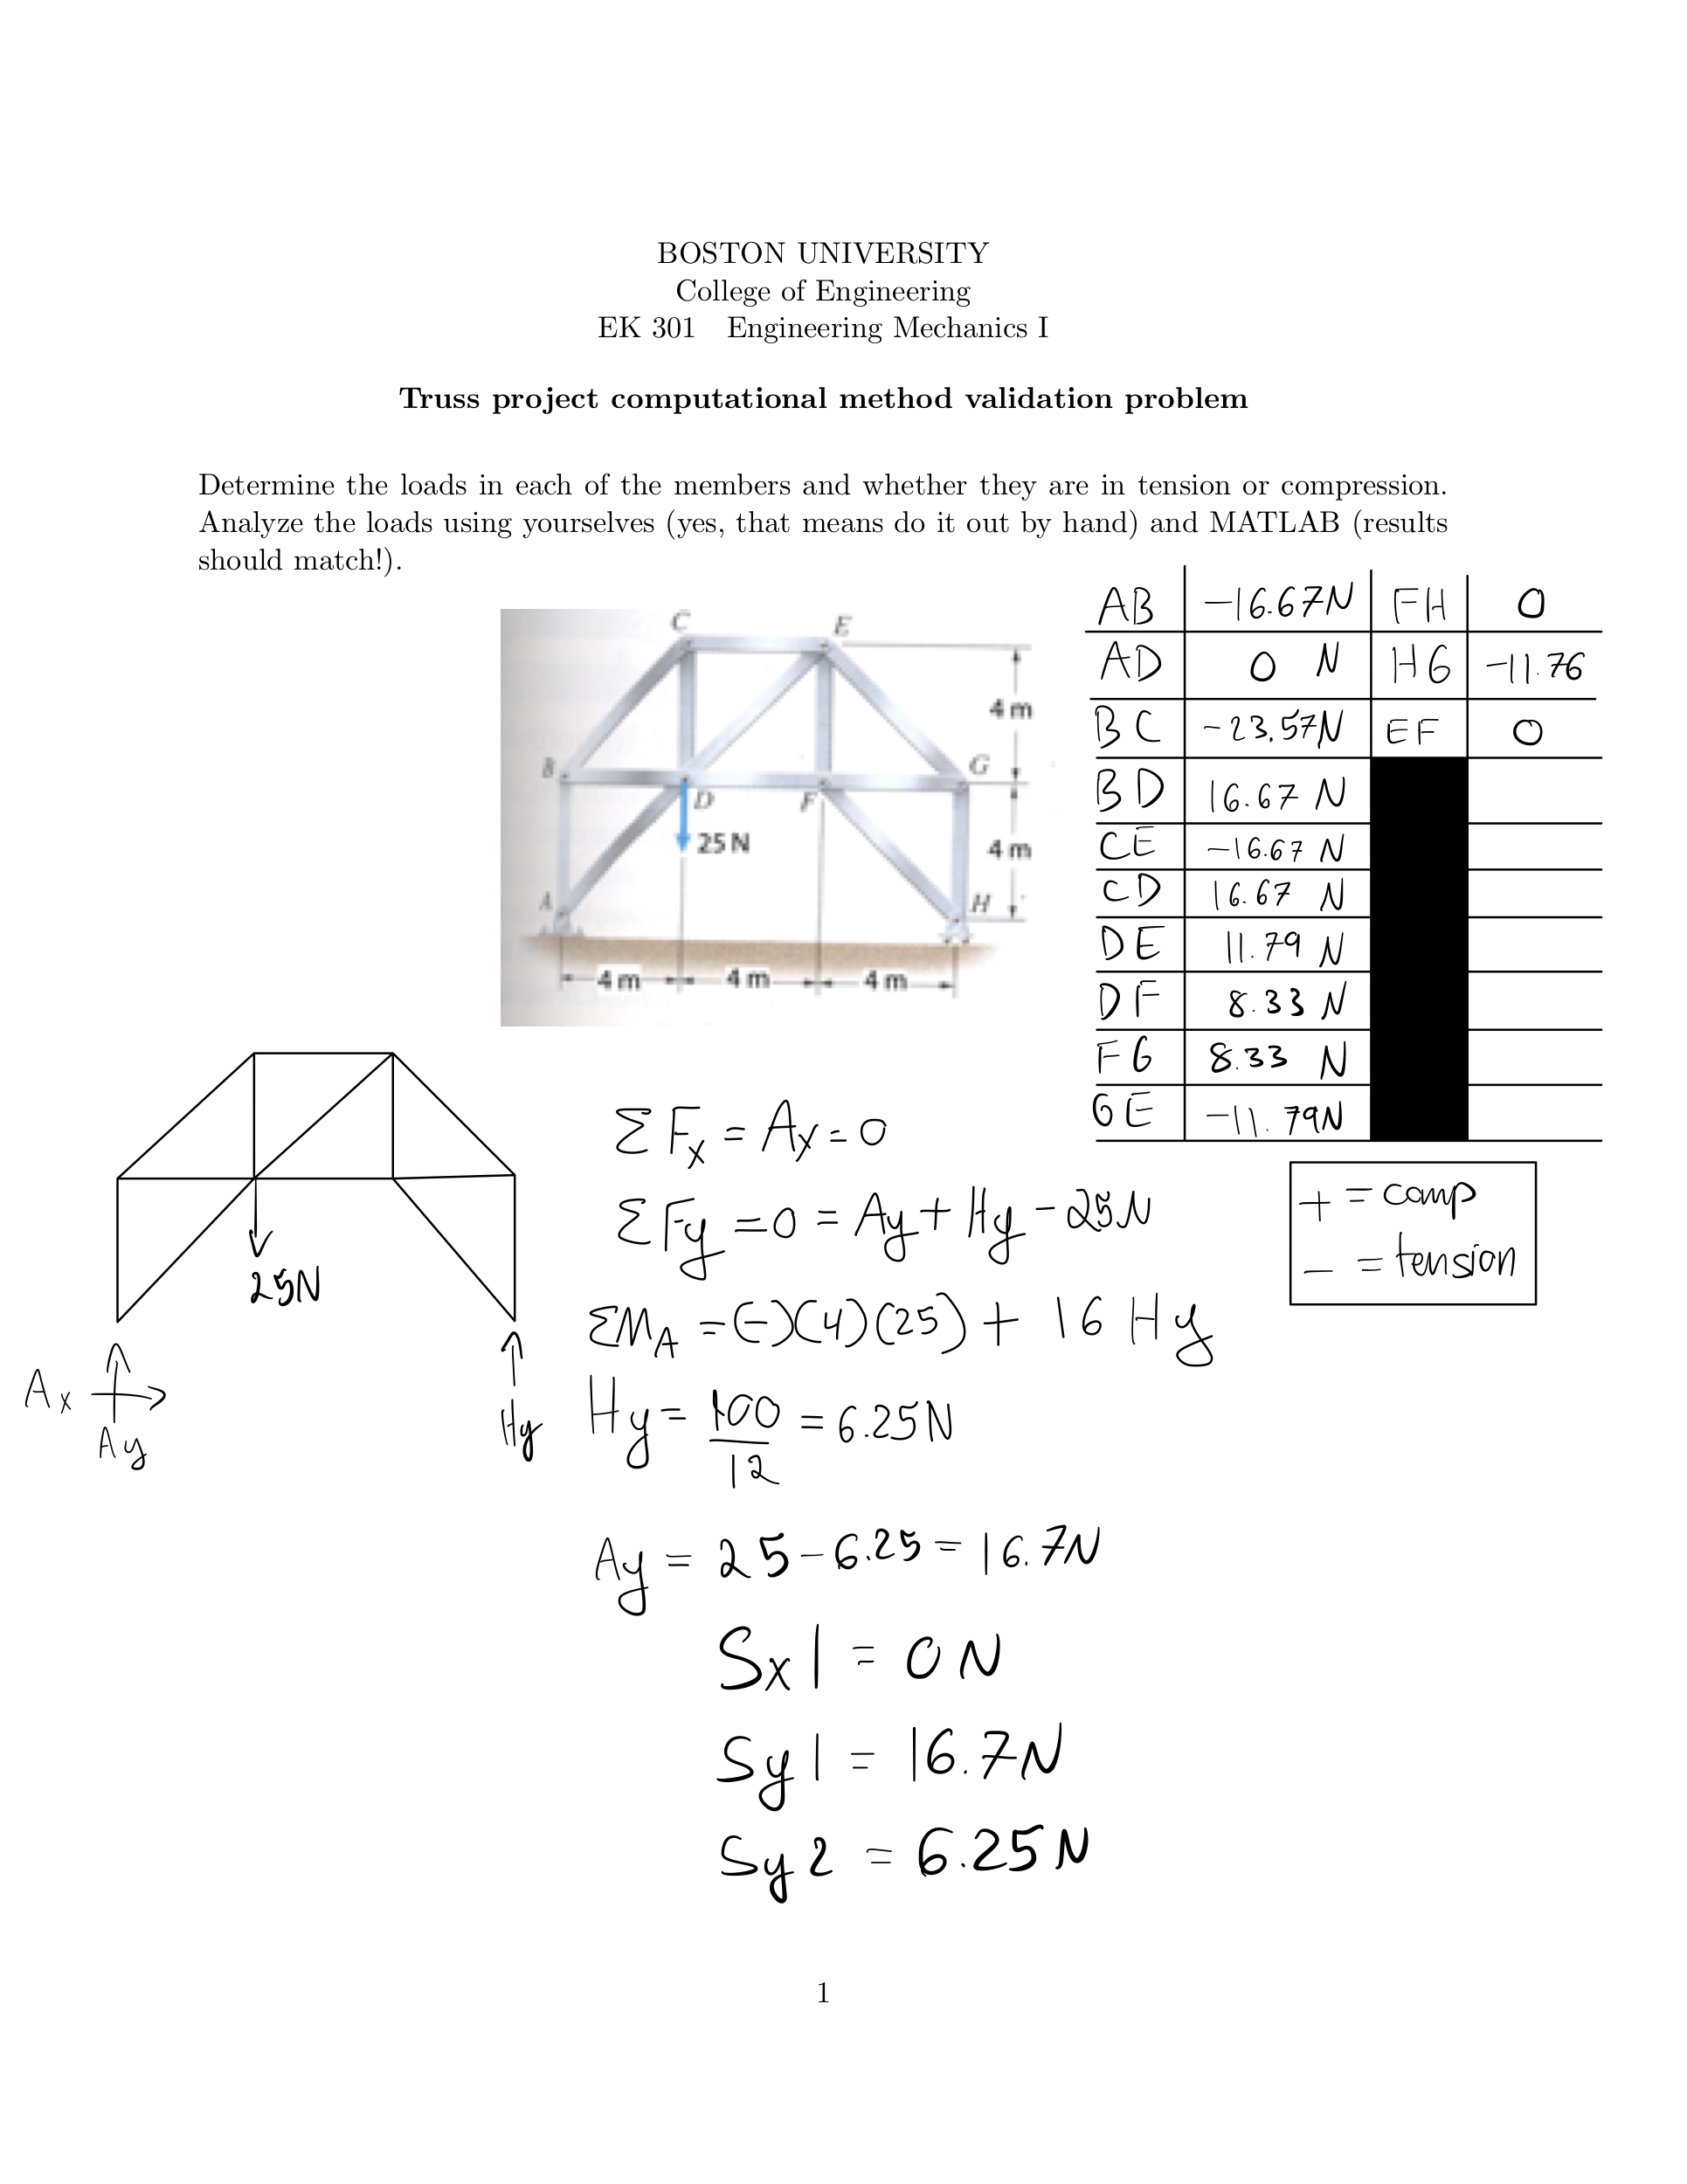 BOSTON UNIVERSITY
College of Engineering
EK 301 Engineering Mechanics I
Truss project computational method validation problem
Determine the loads in each of the members and whether they are in tension or compression.
Analyze the loads using yourselves (yes, that means do it out by hand) and MATLAB (results
should match!).
C E
4 m
B G
D F
25 N
4 m
A H
4 m 4 m 4 m
AB -16.67N FH 0
AD 0 N HG -11.76
BC -23.57N EF 0
BD 16.67 N
CE -16.67 N
CD 16.67 N
DE 11.79 N
DF 8.33 N
FG 8.33 N
GE -11.79N
+ = comp
- = tension
25N
Ax
Ay
Hy
ΣFx = Ax = 0
ΣFy = 0 = Ay + Hy - 25N
ΣMA = (-)(4)(25) + 16 Hy
Hy = 100/12 = 6.25N
Ay = 25 - 6.25 = 16.7N
Sx1 = 0 N
Sy1 = 16.7N
Sy2 = 6.25N
1